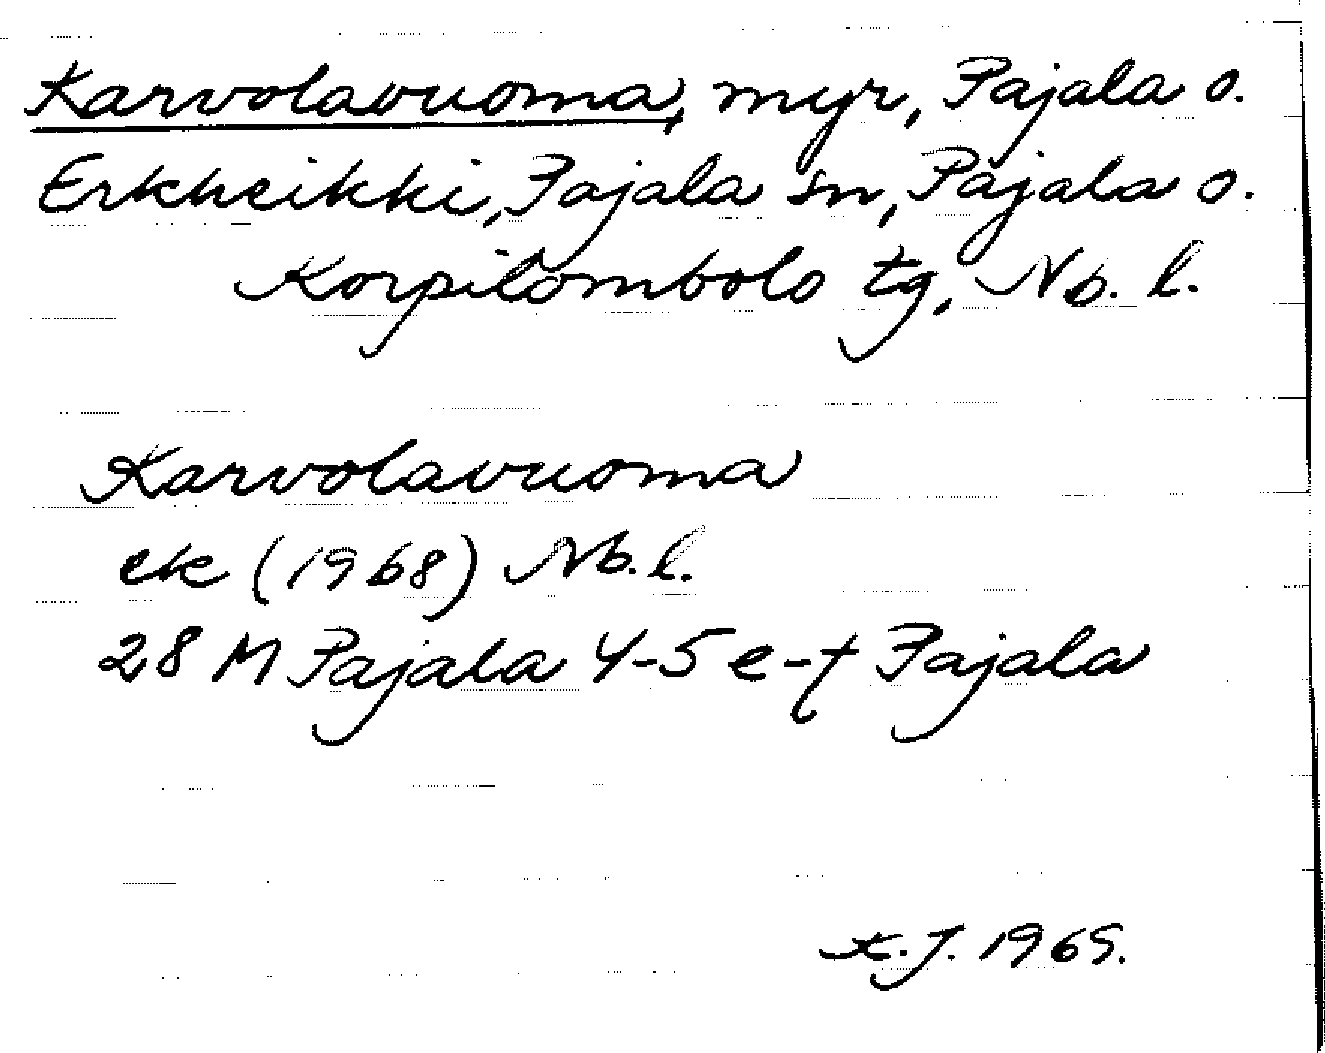 Karvolavuoma, myr, Pajala o.
Erkheikki, Pajala sn, Pajala o.
Korpilombolo tg, Nb. l.
Karvolavuoma
ek (1968) Nb. l.
28 M Pajala 4-5 e-f Pajala
K.J. 1969.